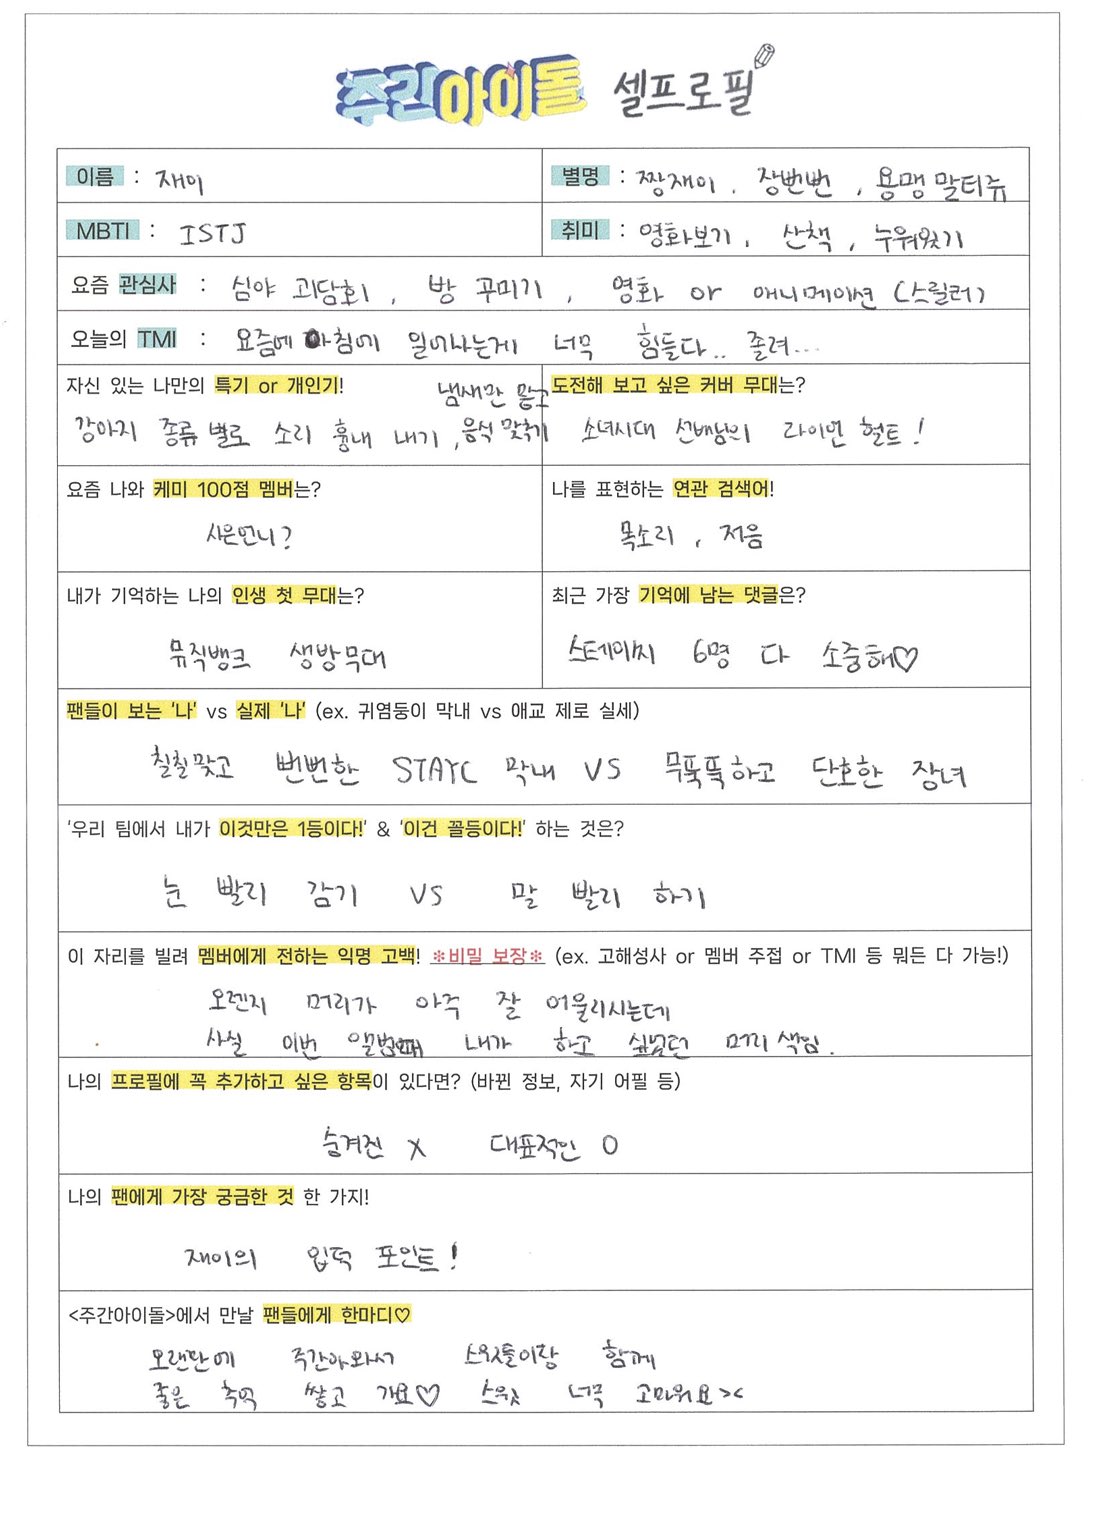 주간아이돌 셀프로필
이름 : 재이
별명 : 짱재이, 장번번, 용맹 말티쥬
MBTI : ISTJ
취미 : 영화보기, 산책, 누워있기
요즘 관심사 : 심야 괴담회, 방 꾸미기, 영화 or 애니메이션 (스릴러)
오늘의 TMI : 요즘에 아침에 일어나는게 너무 힘들다.. 졸려...
자신 있는 나만의 특기 or 개인기!
냄새만 맡고
강아지 종류 별로 소리 흉내 내기, 음식 맞추기
도전해 보고 싶은 커버 무대는?
소녀시대 선배님의 라이언 헐트!
요즘 나와 케미 100점 멤버는?
시은언니?
나를 표현하는 연관 검색어!
목소리, 저음
내가 기억하는 나의 인생 첫 무대는?
뮤직뱅크 생방무대
최근 가장 기억에 남는 댓글은?
스테이씨 6명 다 소중해♡
팬들이 보는 '나' vs 실제 '나' (ex. 귀염둥이 막내 vs 애교 제로 실세)
칠칠맞고 뻔뻔한 STAYC 막내 VS 무뚝뚝하고 단호한 장녀
'우리 팀에서 내가 이것만은 1등이다!' & '이건 꼴등이다!' 하는 것은?
눈 빨리 감기 VS 말 빨리 하기
이 자리를 빌려 멤버에게 전하는 익명 고백! *비밀 보장* (ex. 고해성사 or 멤버 주접 or TMI 등 뭐든 다 가능!)
오렌지 머리가 아주 잘 어울리시는데
사실 이번 앨범때 내가 하고 싶었던 머리 색임.
나의 프로필에 꼭 추가하고 싶은 항목이 있다면? (바뀐 정보, 자기 어필 등)
숨겨진 X 대표적인 O
나의 팬에게 가장 궁금한 것 한 가지!
재이의 입덕 포인트!
<주간아이돌>에서 만날 팬들에게 한마디♡
오랜만에 주간아 와서 스윗들이랑 함께
좋은 추억 쌓고 가요♡ 스윗 너무 고마워요><